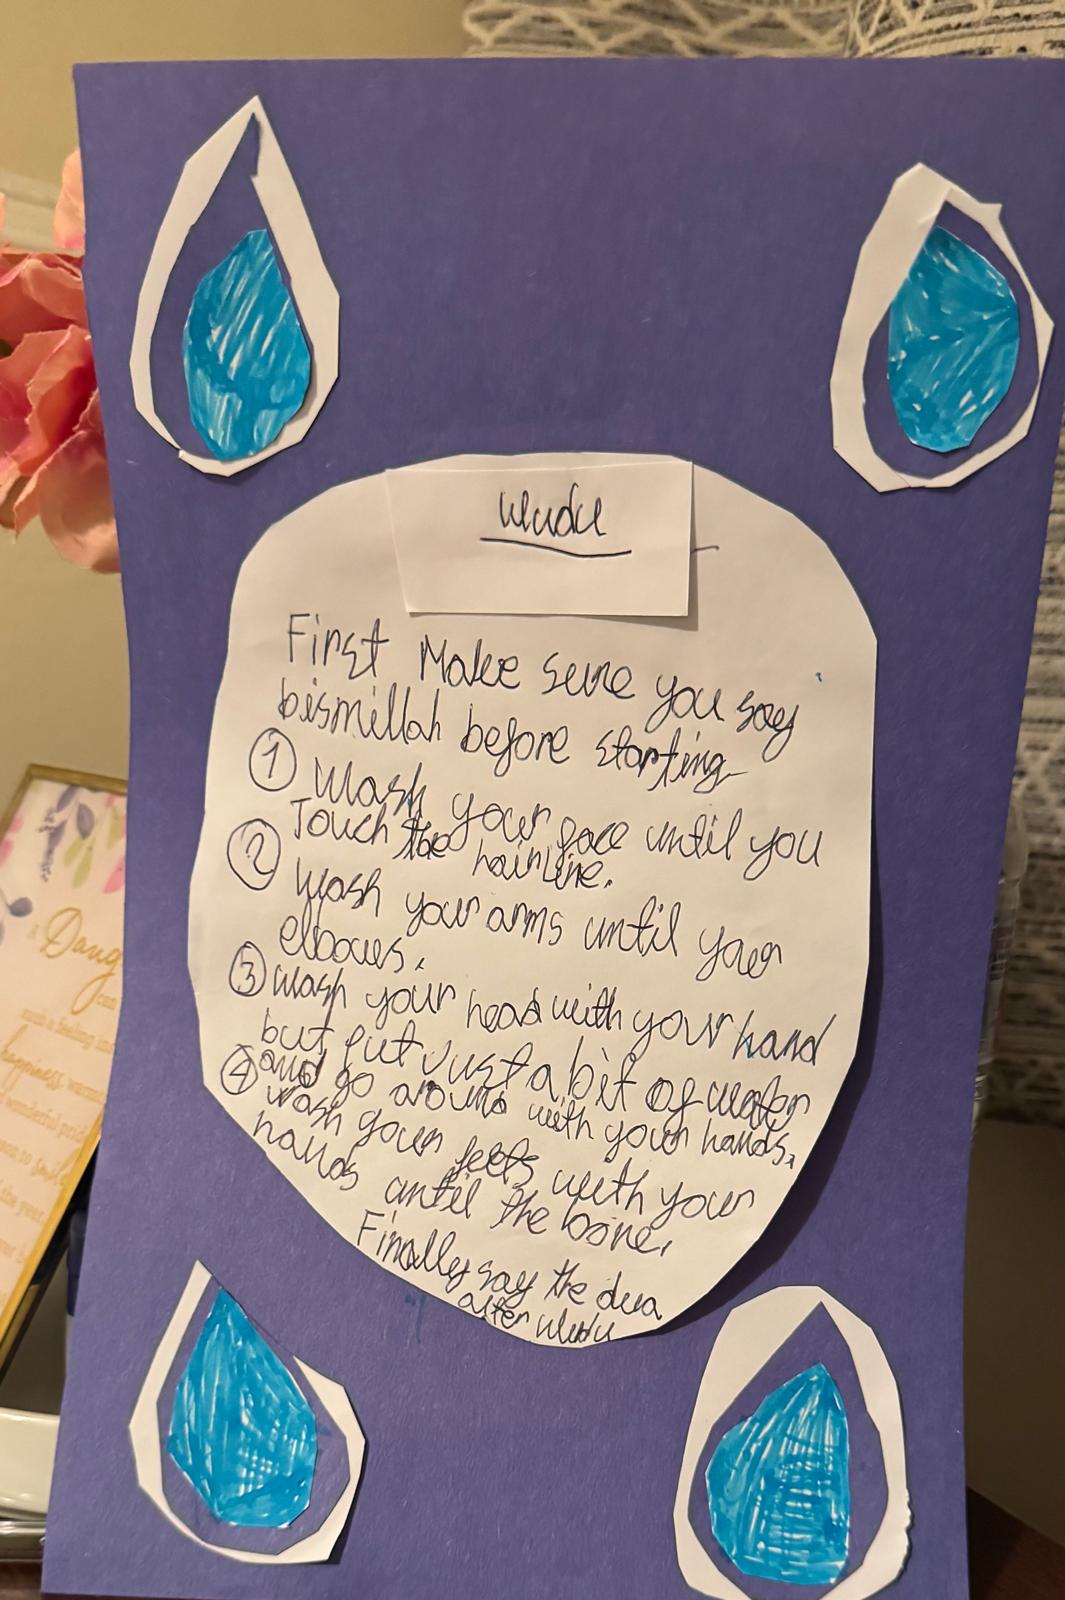 wudu
First Make sure you say
bismillah before starting
① Wash your face until you
Touch the hairline.
② Wash your arms until your
elbows.
③ Wash your head with your hand
but put Just a bit of water
and go around with your hands.
④ Wash your feets with your
hands until the bone.
Finally say the dua
after wudu
a Daug
can
such a feeling
happiness, warm
wonderful
smile
the year,